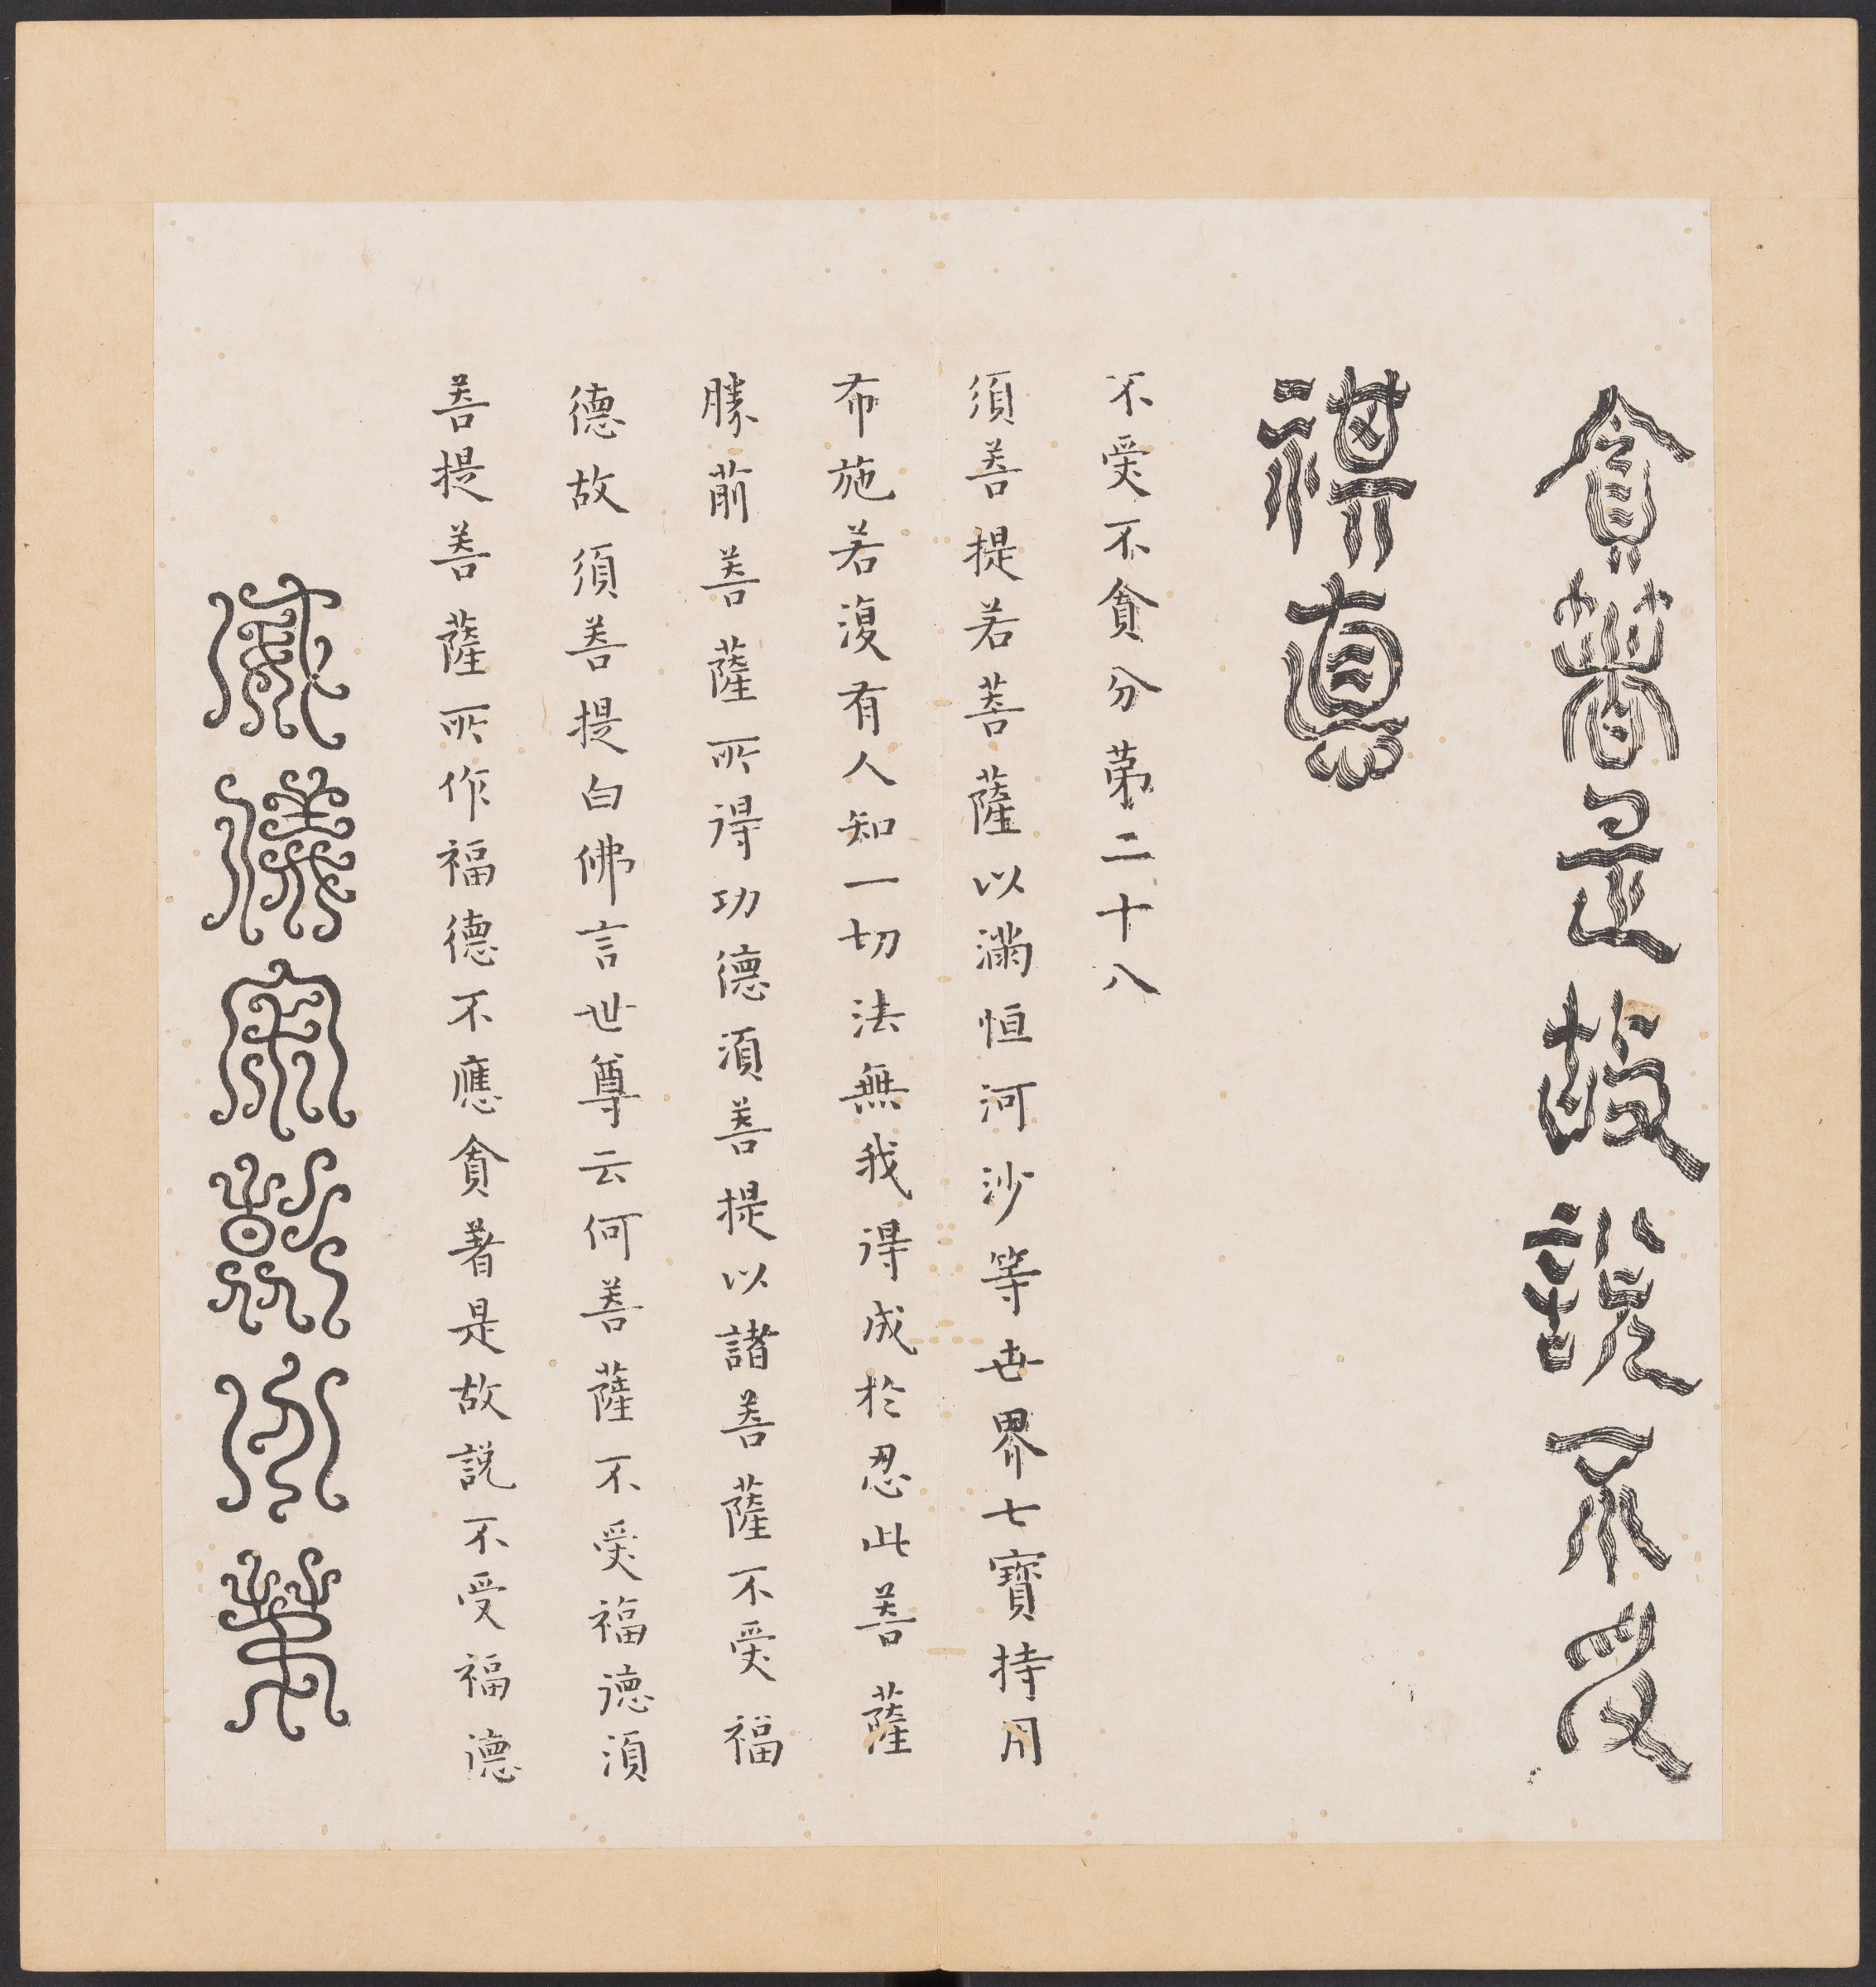 貪著是故說不受
福德
不受不貪分第二十八
須菩提若菩薩以滿恒河沙等世界七寶持用
布施若復有人知一切法無我得成於忍此菩薩
勝前菩薩所得功德須菩提以諸菩薩不受福
德故須菩提白佛言世尊云何菩薩不受福德須
菩提菩薩所作福德不應貪著是故說不受福德
威儀寂靜分第